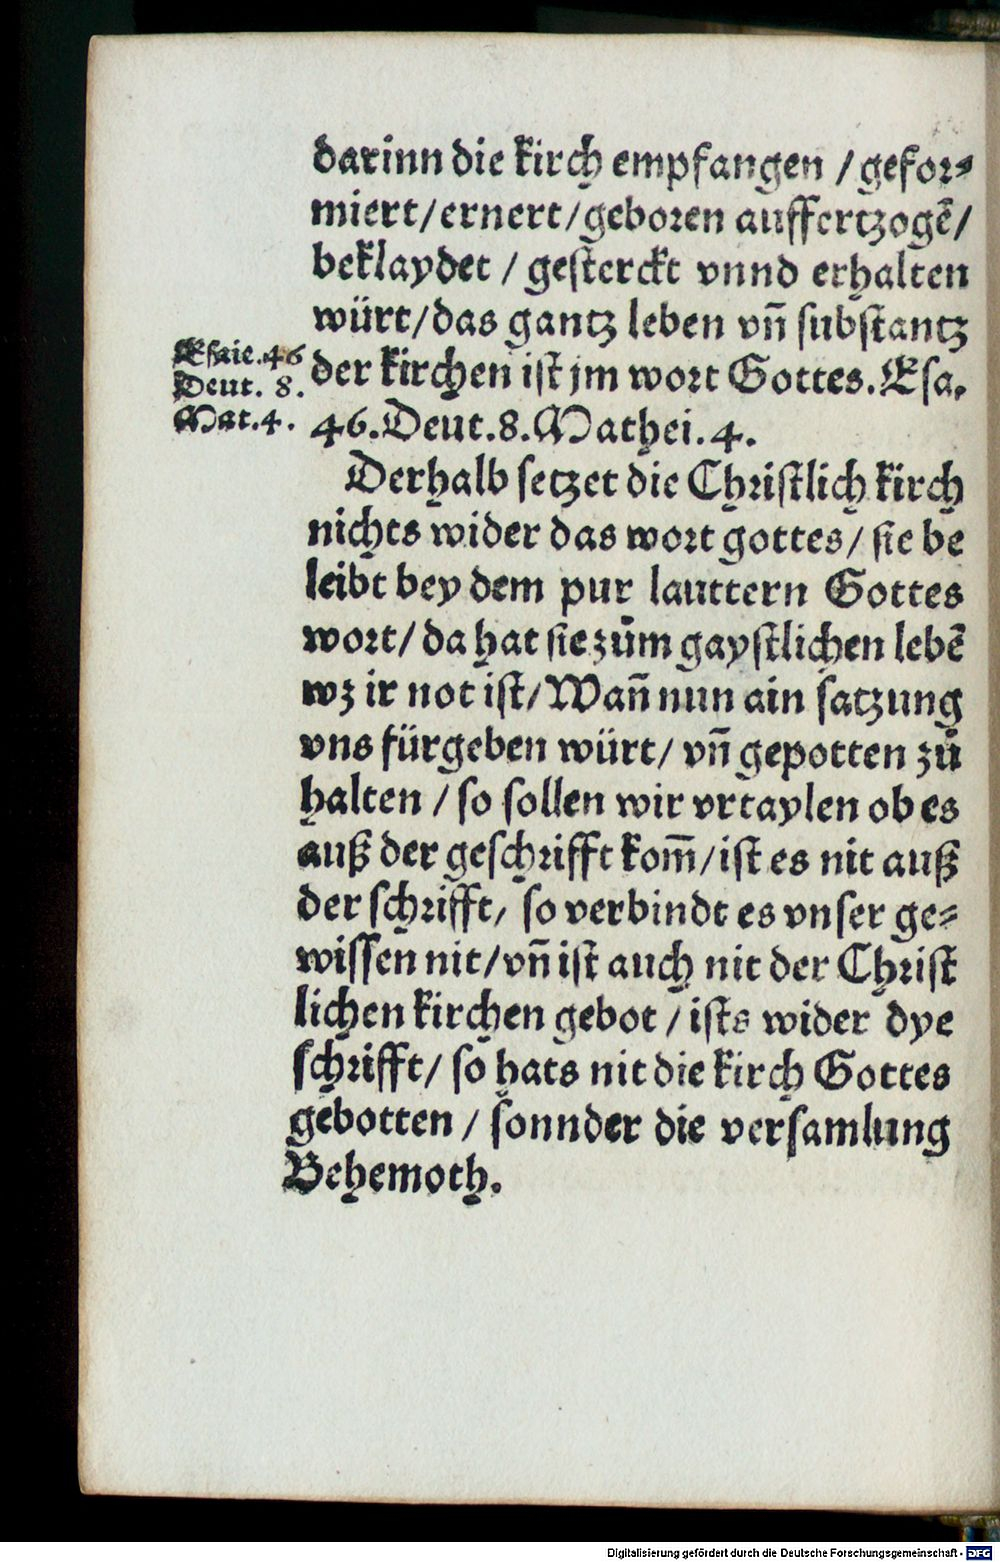 darinn die kirch empfangen / gefor⸗
miert / ernert / geboren auffertzogē /
beklaydet / gesterckt vnnd erhalten
würt / das gantz leben vn̄ substantz
Esaie. 46
Deut. 8.
Mat. 4.
der kirchen ist jm wort Gottes. Esa.
46. Deut. 8. Mathei. 4.
Derhalb setzet die Christlich kirch
nichts wider das wort gottes / sie be
leibt bey dem pur lauttern Gottes
wort / da hat sie zům gaystlichen lebē
wz ir not ist / Wan̄ nun ain satzung
vns fürgeben würt / vn̄ gepotten zů
halten / so sollen wir vrtaylen ob es
auß der geschrifft kom̄ / ist es nit auß
der schrifft / so verbindt es vnser ge⸗
wissen nit / vn̄ ist auch nit der Christ
lichen kirchen gebot / ists wider dye
schrifft / so hats nit die kirch Gottes
gebotten / sonnder die versamlung
Behemoth.
Digitalisierung gefördert durch die Deutsche Forschungsgemeinschaft - DFG